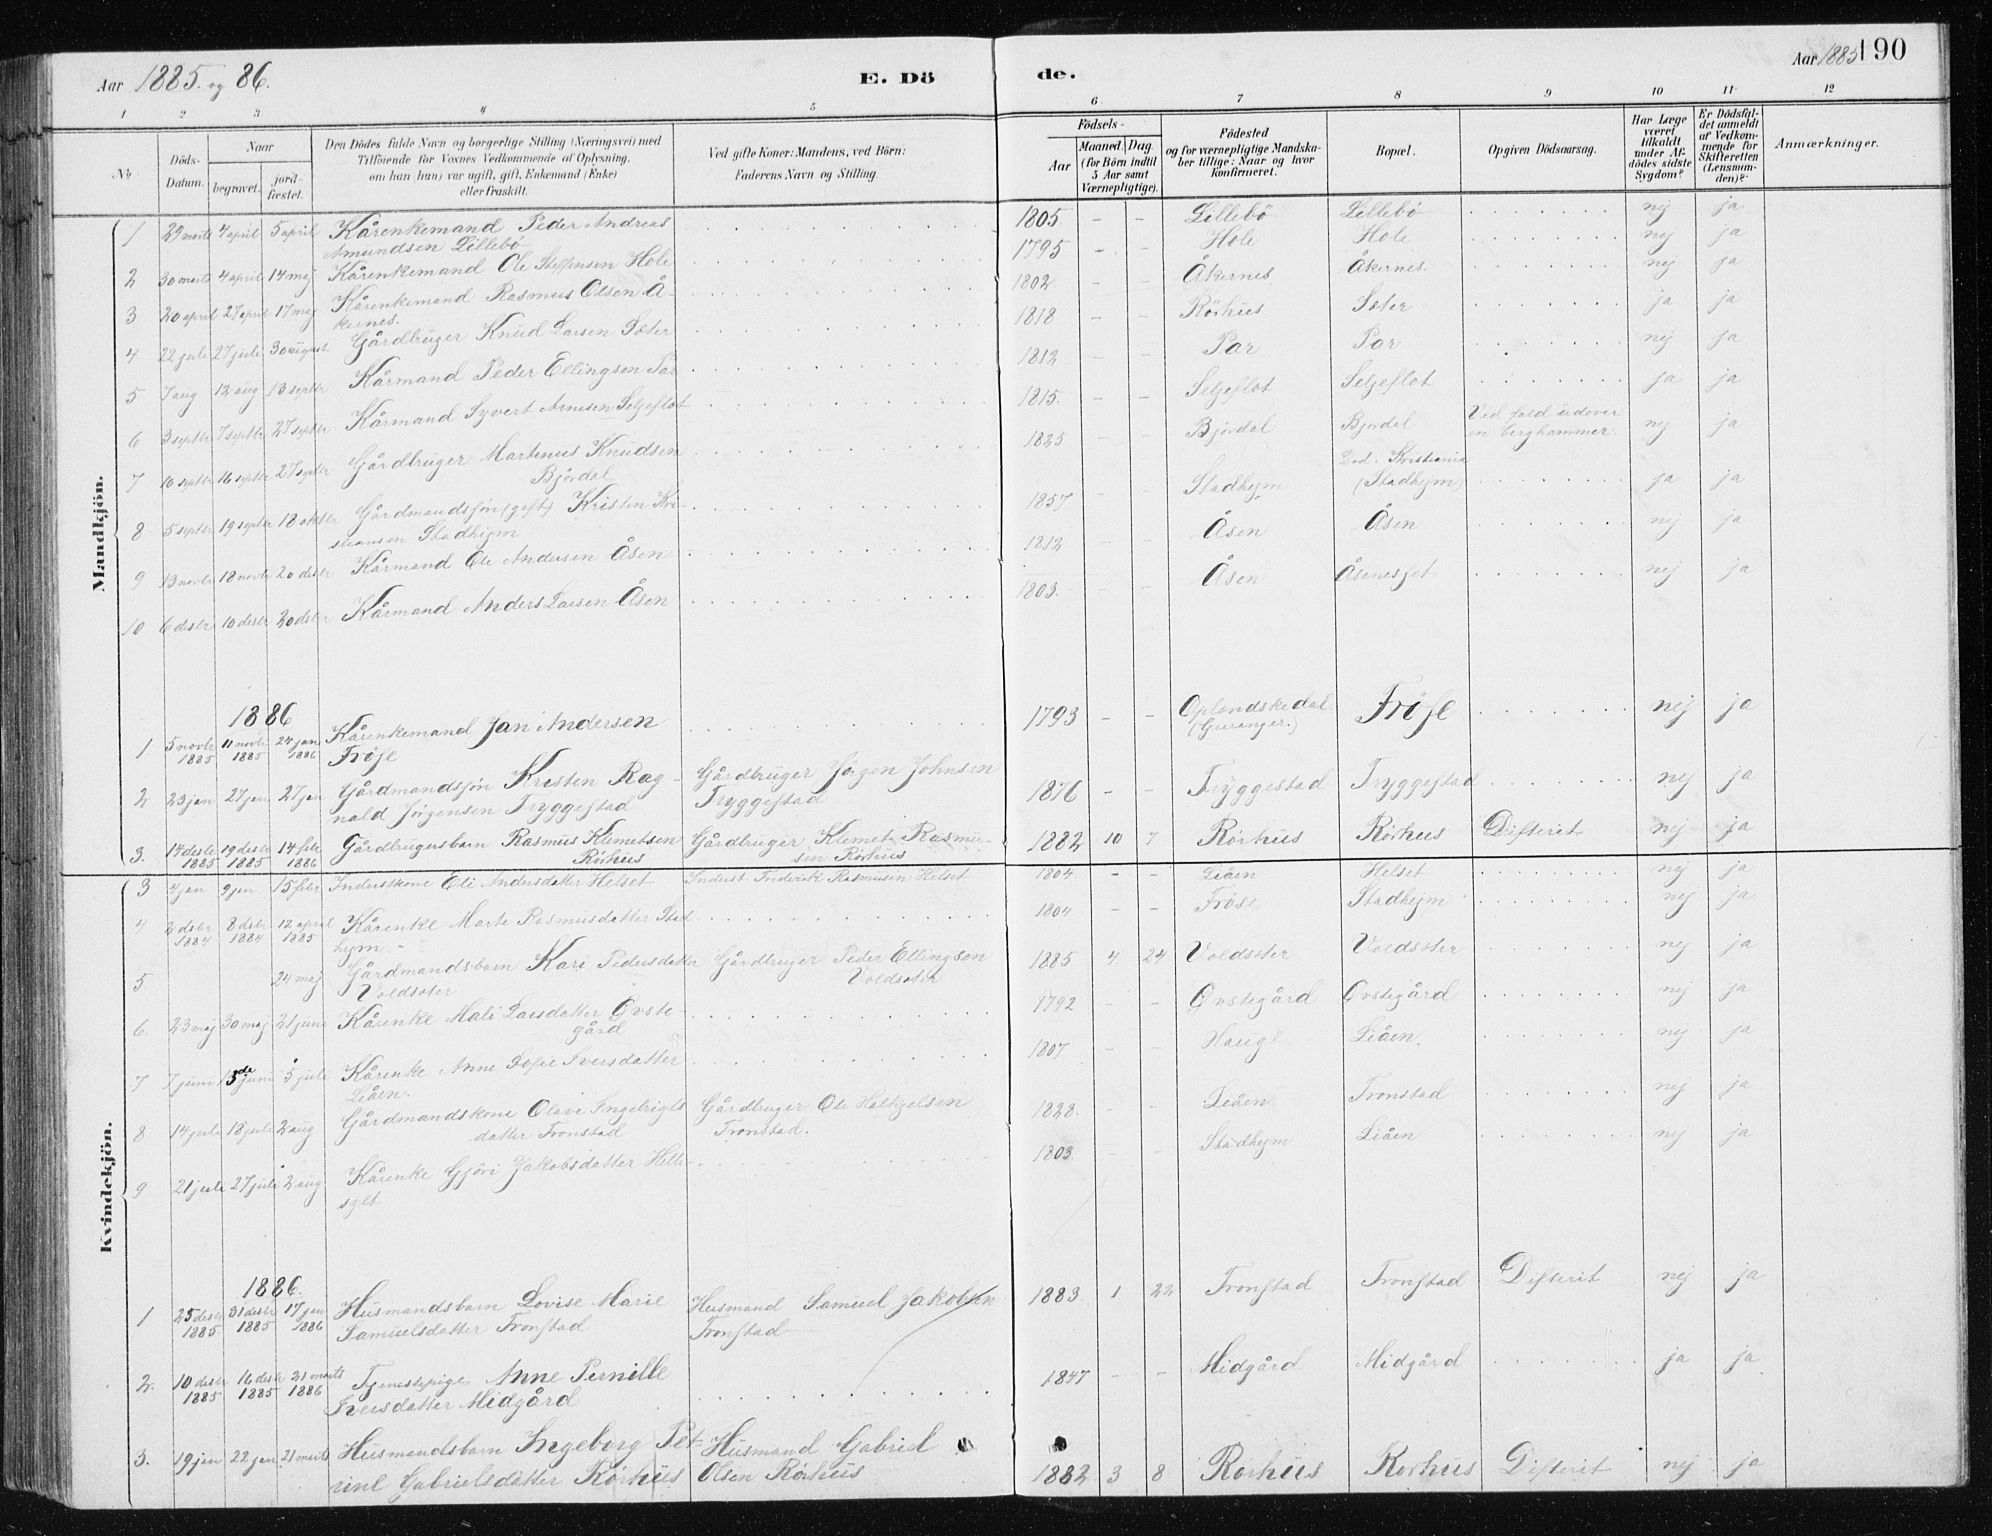 Aar 1885 og 86.
E. Dö
de.
Aar 1885
190
1 2 3 4 5 6 7 8 9 10 11 12
No
Döds-Datum.
Naar
begravet.
jordfæstet.
Den Dödes fulde Navn og borgerlige Stilling (Næringsvei) med
Tilföiende for Voxnes Vedkommende af Oplysning,
om han (hun) var ugift, gift, Enkemand (Enke)
eller fraskilt.
Ved gifte Koner: Mandens, ved Börn:
Faderens Navn og Stilling.
Födsels-
Aar
Maaned. Dag.
(for Börn indtil
5 Aar samt
Værnepligtige).
Födested
og for værnepligtige Mandskaber tillige: Naar og hvor
konfirmeret.
Bopæl.
Opgiven Dödsaarsag.
Har Læge
været
tilkaldt
under Afdödes sidste
Sygdom?
Er Dödsfaldet anmeldt
af Vedkommende for
Skifteretten
(Lensmanden)?
Anmærkninger.
Mandkjön.
1 29 marts 4 april 5 april Kårenkemand Peder Andreas 1805 - - Lillebö Lillebö nej ja
Amundsen Lillebö
2 30 marts 4 april 14 maj Kårenkemand Ole Steffensen Hole 1795 - - Hole Hole nej ja
3 20 april 27 april 17 maj Kårenkemand Rasmus Olsen Å- 1802 - - Åkernes Åkernes. nej ja
kernes.
4 22 juli 27 juli 30 august Gårdbruger Knud Larsen Sæter 1818 - - Rörhus Sæter ja ja
5 7 aug 12 aug 13 septbr Kårmand Peder Ellingsen Par 1812 - - Par Par nej ja
6 3 septbr 7 septbr 27 septbr Kårmand Syvert Arnesen Seljeflot 1815. - - Seljeflot Seljeflot ja ja
7 10 septbr 16 septbr 27 septbr Gårdbruger Martinus Knudsen 1825 - - Björdal Björdal Ved fald udover nej ja
Björdal
en berghammer.
8 5 septbr 19 septbr 18 oktbr Gårdmandssön (gift) Kristen Kri- 1857 - - Stadhejm Död i Kristiania ja ja
stiansen Stadhejm
(Stadhejm)
9 13 novbr 18 novbr 20 desbr Kårmand Ole Andersen Åsen 1812 - - Åsen Åsen nej ja
10 6 desbr 10 desbr 20 desbr Kårmand Anders Larsen Åsen 1803. - - Åsen Åsenesjet nej ja
1886
1 5 novbr 11 novbr 24 jan Kårenkemand Jan Andersen 1793 - - Oplandskedal Fröse nej ja
1885 1885 1886 Fröse (Geiranger.)
2 23 jan 27 jan 27 jan Gårdmandssön Kristen Rag- Gårdbruger Jörgen Johnsen 1876 - - Tryggestad Tryggestad nej ja
nald Jörgensen Tryggestad Tryggestad
3. 14 desbr 19 desbr 14 febr Gårdbrugersbarn Rasmus Klemetsen Gårdbruger Klemet Rasmu- 1882 10 7 Rörhus Rörhus Difterit nej ja
1885 1885 1886 Rörhus sen Rörhus
Kvindekjön.
3 4 jan 9 jan 15 febr Inderstkone Eli Andersdatter Helset Inderst Frederik Rasmusen Helset 1804 - - Liåen Helset nej ja
4 2 desbr 8 desbr 12 april Kårenke Marte Rasmusdatter Stad 1804 - - Fröse Stadhejm nej ja
1884 1884 1885 hejm
5. 24 maj Gårdmandsbarn Kari Pedersdatter Gårdbruger Peder Ellingsen 1885 4. 24 Voldsæter Voldsæter nej ja
Voldsæter Voldsæter
6. 23 maj 30 maj 21 juni Kårenke Mali Larsdatter Ovste- 1792 - - Ovstegård Ovstegård nej ja
gård
7 7 juni 13de juni 5 juli Kårenke Anne Sofie Iversdatter 1807 - - Hauge Liåen. nej ja
Liåen.
8 14 juli 18 juli 2 aug Gårdmandskone Olave Ingebrigts Gårdbruger Ole 1828. - - Liåen Tronstad nej ja
datter Tronstad Tronstad.
9 21 juli 27 juli 2 aug Kårenke Gjöri Jakobsdatter Helle- 1803. - - Stadhejm Liåen nej ja
sylt
1886.
1 25 desbr 31 desbr 17 jan Husmandsbarn Lovise Marie Husmand Samuel Jakobsen 1883. 1 22 Tronstad Tronstad Difterit nej ja
1885 1885 1886 Samuelsdatter Tronstad Tronstad
2. 10 desbr 16 desbr 21 marts Tjenestepige Anne Pernille 1847 - - Midgård Midgård ja ja
1885 1885 1886 Iversdatter Midgård
3. 19 jan 22 jan 21 marts Husmandsbarn Ingeborg Pet- Husmand Gabriel 1882 3 8 Rörhus Rörhus Difterit nej ja
rine Gabrielsdatter Rörhus Olsen Rörhus